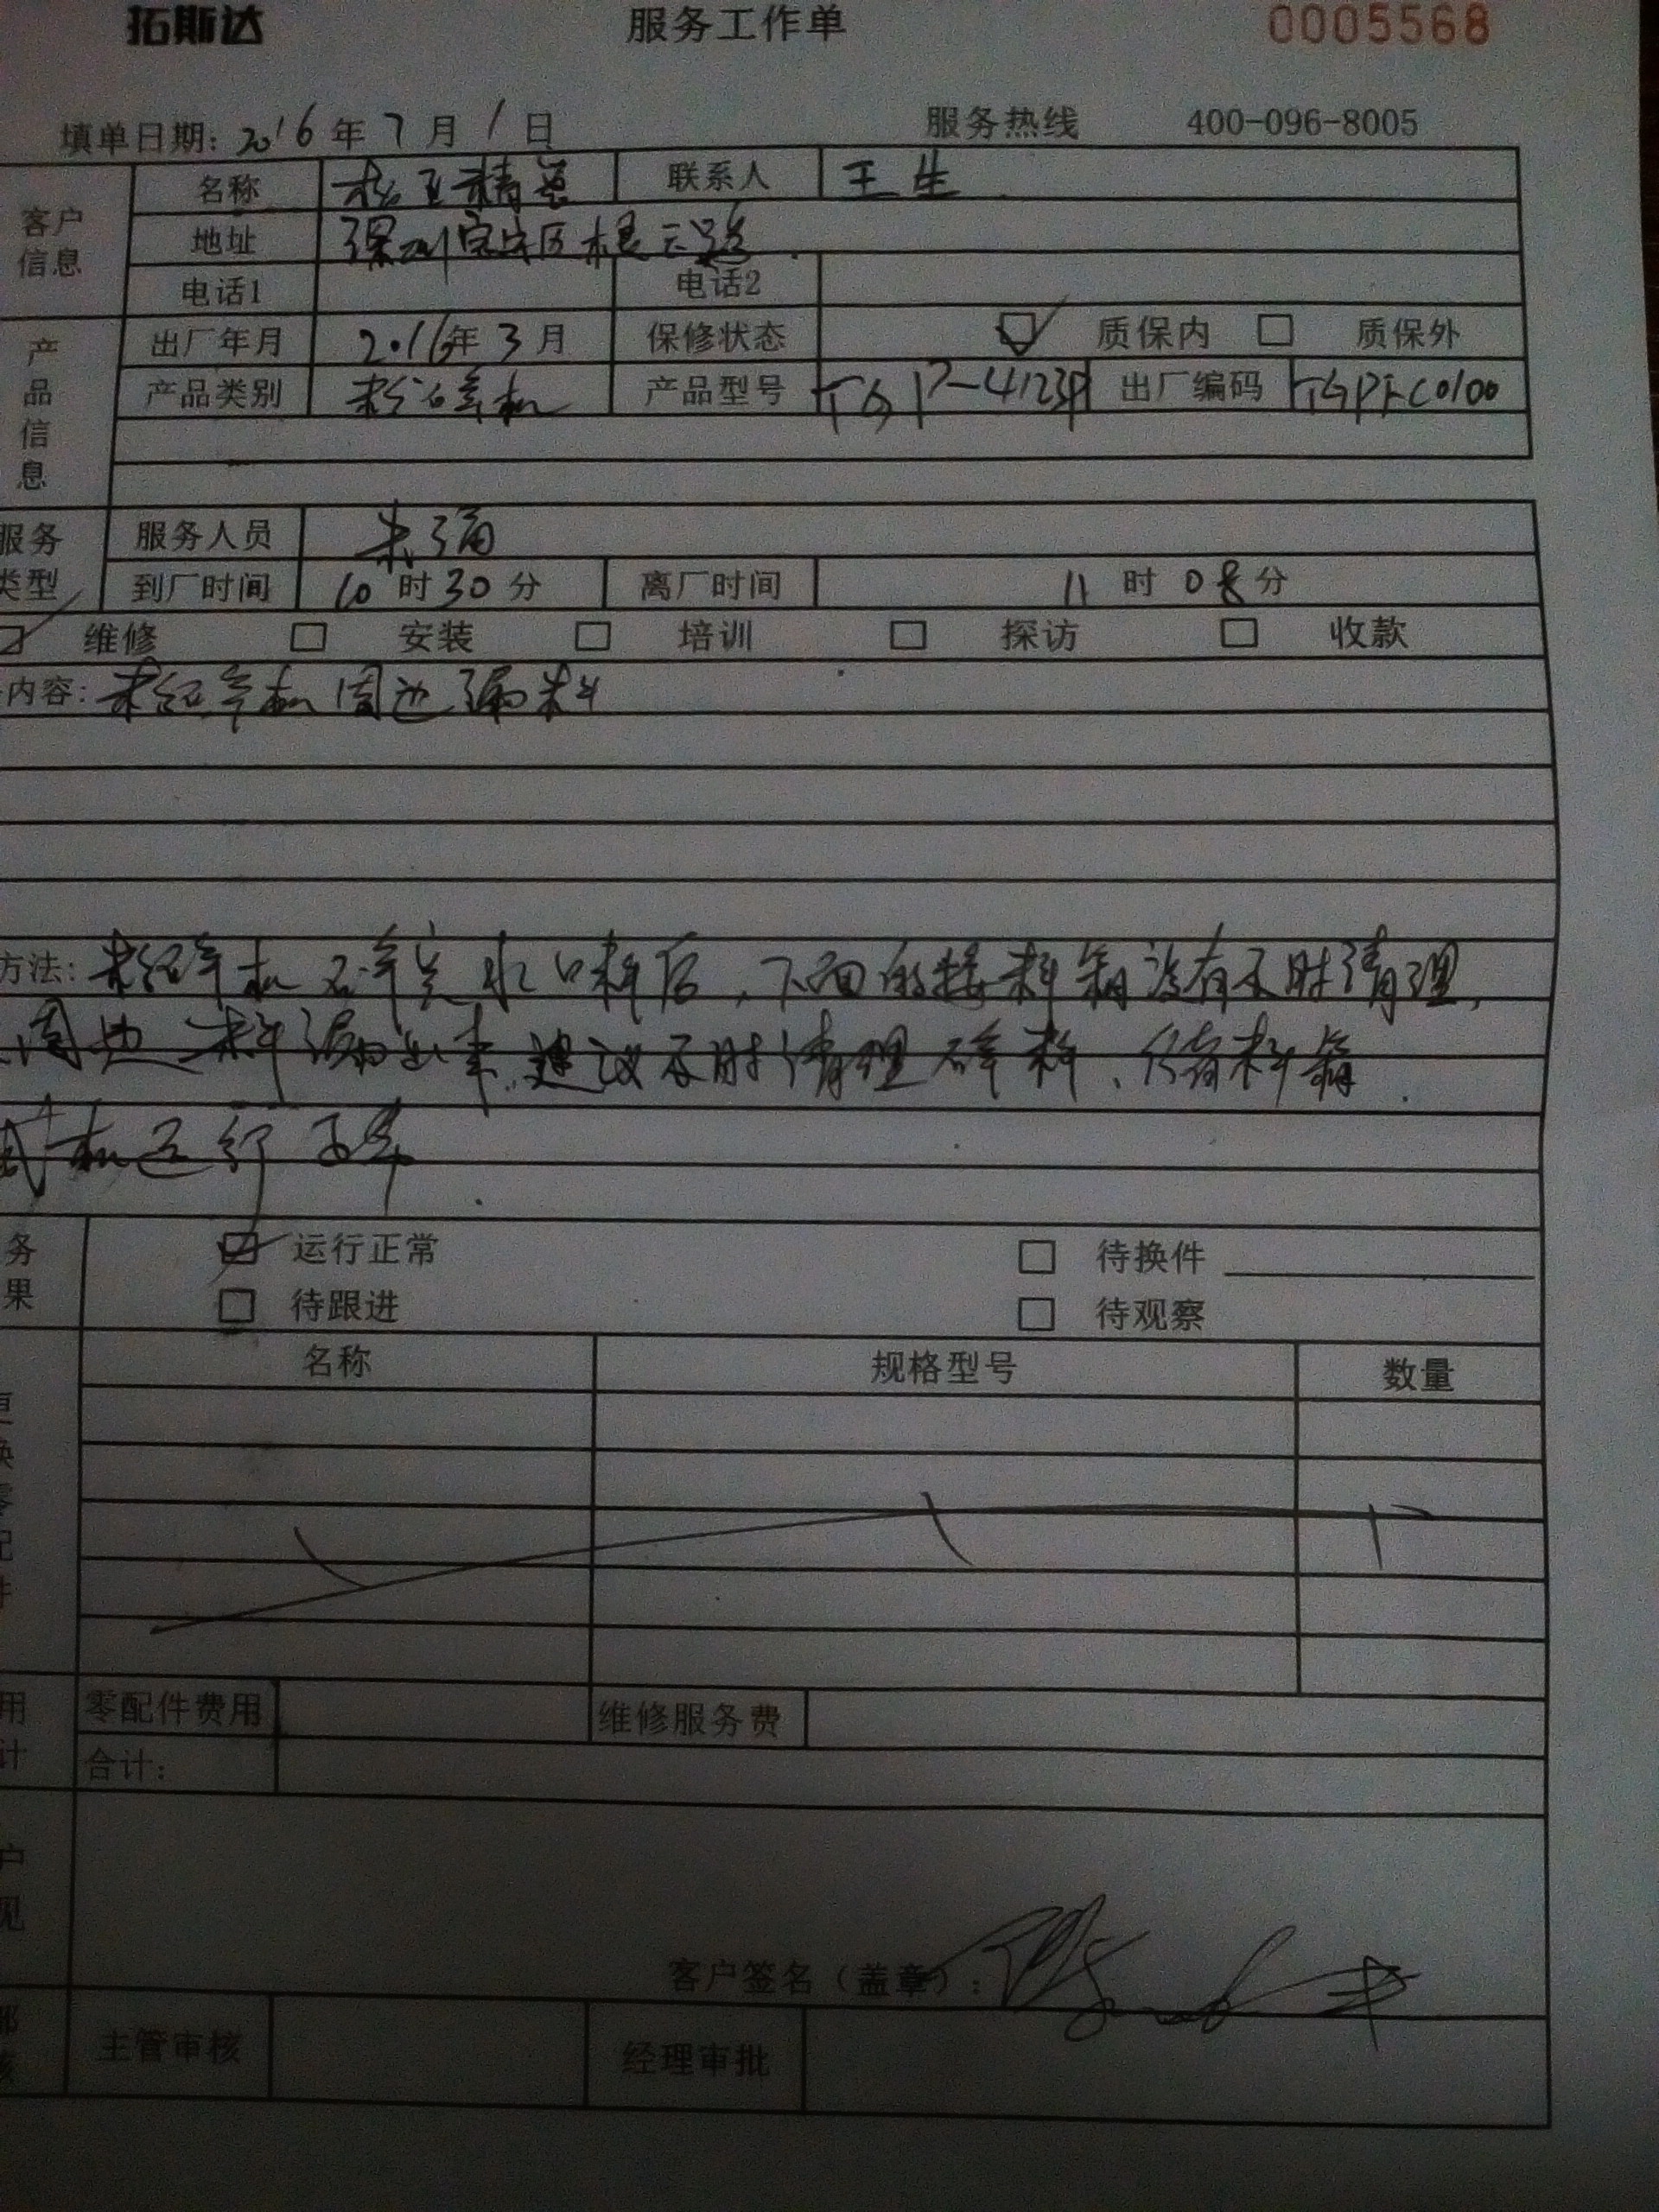 拓斯达 服务工作单 0005568
填单日期: 2016年7月1日 服务热线 400-096-8005
客户信息
名称 联系人 王生
地址 深圳宝安区
电话1 电话2
产品信息
出厂年月 2016年3月 保修状态 质保内 质保外
产品类别 粉碎机 产品型号 出厂编码
服务类型
服务人员
到厂时间 10时30分 离厂时间 11时08分
维修 安装 培训 探访 收款
内容: 粉碎机周边漏料
方法: 粉碎机碎完水口料后，下面的接料箱没有及时清理，
周边料漏出来.建议及时清理碎料、储料箱.
试机运行正常.
务果
运行正常 待换件
待跟进 待观察
更换零配件
名称 规格型号 数量
用计
零配件费用 维修服务费
合计:
户见
客户签名(盖章):
主管审核 经理审批